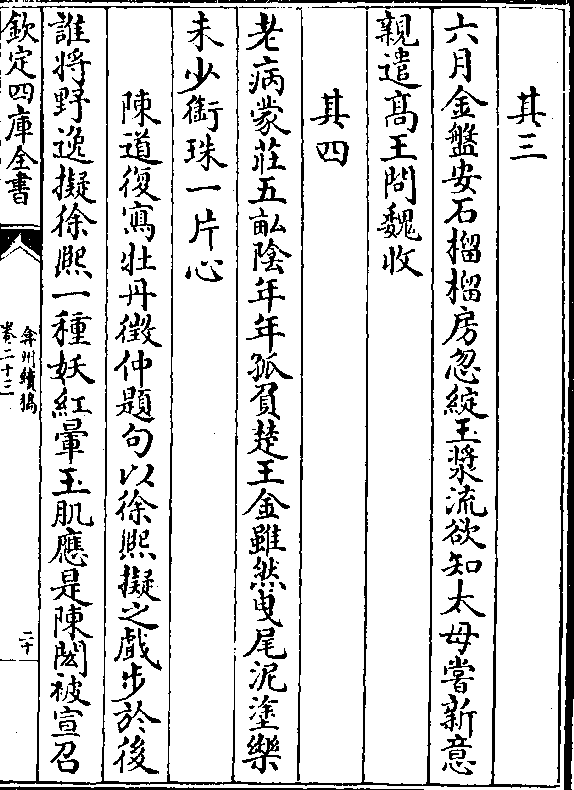 其三
六月金盤安石榴榴房忽綻玉漿流欲知太母嘗新意
親遣髙王問魏收
其四
老病蒙莊五畝陰年年孤負楚王金雖然曵尾泥塗樂
未少銜珠一片心
陳道復寫牡丹徵仲題句以徐熙擬之戲步於後
誰将野逸擬徐熙一種妖紅暈玉肌應是陳閎被宣召
欽定四庫全書
弇州續稿
卷二十三
二十